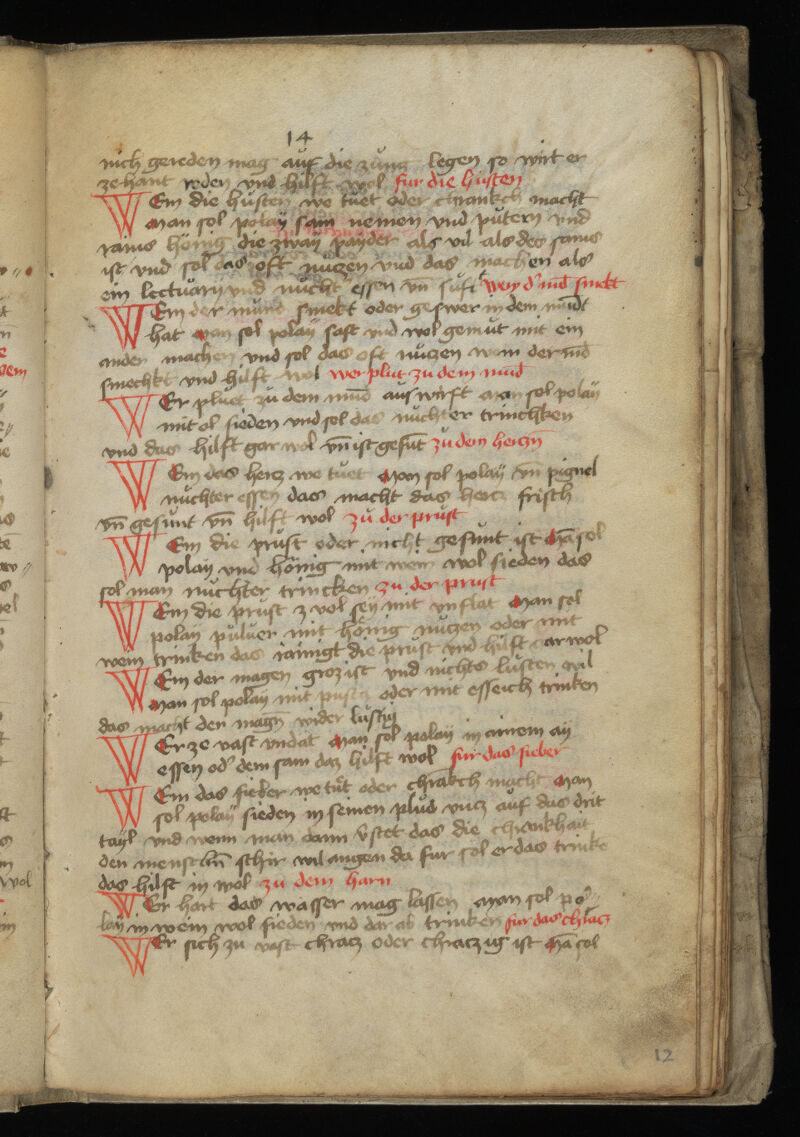 14
nich gereden mag auf die zung legen so wirt er
zehant reden vnd hilft wol fur die husten
WEm die husten we tuet oder chrankch macht
man sol polay sam nemen vnd putern vnd
rams honig die zway payder als vil als des sams
ist vnd sol das oft nuczen vnd das machen als
ein lectuary vnd nucht essen vn̄ suft wey d' mūd smekt
WEm der mund smekt oder geswer in dem mūdt
hat man sol polay saft vnd wolgemut mit ein
ander machen vnd sol das oft nuczen wem der mūd
smechkt vnd hilft wol wer plut zu dem mūd
WEr pluet zu dem mūd auswirft man sol polay
mit ol sieden vnd sol das nuchter trinchken
vnd das hilft gar wol vn̄ ist gesūt zu dem herczn
WEm das hercz we tuet man sol polay vn̄ pignel
nuchter essen das macht das hercz frisch
vn̄ gesunt vn̄ hilft wol zu der prust
WEm die prust oder nicht gesunt ist Mā sol
polay vnd honig mit wein wol sieden das
sol man nuchter trincken zu der prust
WEm die prust z vol sey mit vnflat Man sol
polay puluer mit honig nuczen oder mit
wein trinken das rainigt die prust vnd hilft gar wol
WEm der magen groz ist vnd nichts lusten wil
Man sol polay mit oder mit esseich trinken
das macht den magn̄ wider lustig
WEr ze vast vndat Man sol polay in ainem ay
essen od' dem sam daz hilft wol fur das fieber
WEm das fieber we tut oder chrākch macht Man
sol polay sieden in seinen plud vncz auf das drit
tayl vnd wenn man dann v̄stet das die chrankhait
den menschn̄ schir wil angen da fur sol er das trinke
das hilft in wol zu dem harn
WEr hart das wasser mag lassen Man sol po
lay in wein wol sieden vnd dar ab trinken fur das chracz
WEr sich zu vast chracz oder chraczug ist Mā sol
12